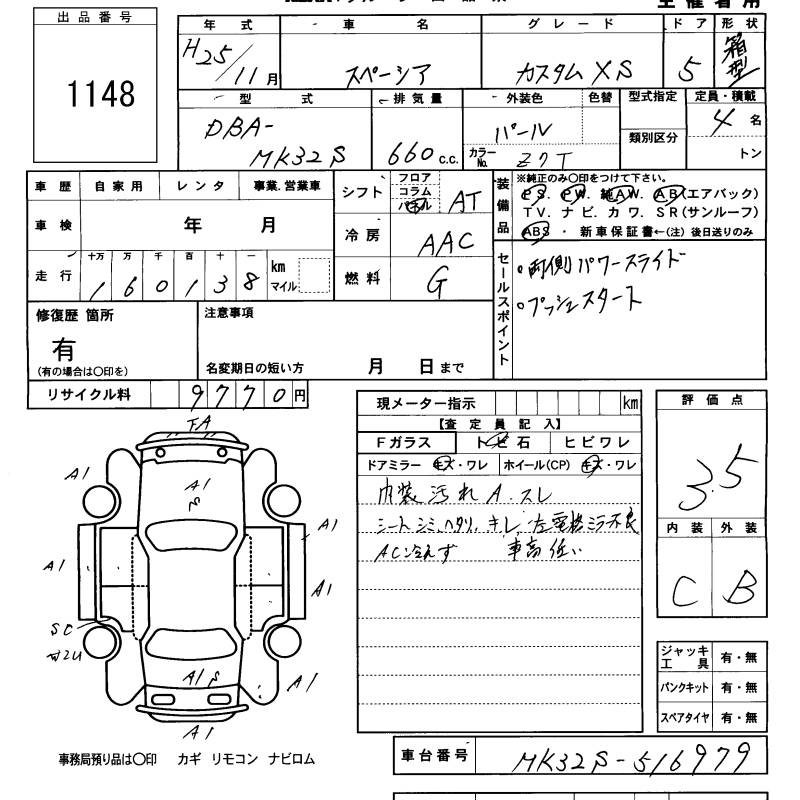 出品番号
1148
年式 車名 グレード ドア 形状
H25/11月 スペーシア カスタム XS 5 箱型
型式 排気量 外装色 色替 型式指定 定員・積載
DBA-
MK32S 660 c.c. パール 4 名
類別区分
カラーNo. Z7T トン
車歴 自家用 レンタ 事業.営業車
車検 年 月
走行 十万 万 千 百 十 一
1 6 0 1 3 8 km マイル
シフト フロア コラム パネル AT
冷房 AAC
燃料 G
装備品 ※純正のみ〇印をつけて下さい。
PS. PW. 純AW. AB(エアバック)
TV. ナビ. カワ. SR(サンルーフ)
ABS ・ 新車保証書←(注) 後日送りのみ
セールスポイント
。両側パワースライド
。プッシュスタート
修復歴 箇所
有
(有の場合は〇印を)
注意事項
名変期日の短い方 月 日まで
リサイクル料 9770円
現メーター指示 km
【査定員記入】
Fガラス トビ石 ヒビワレ
ドアミラー キズ・ワレ ホイール(CP) キズ・ワレ
内装汚れ A.スレ
シートシミ,ヘタリ,キレ,左電格ミラ不良
AC冷えず 車高低い
評価点
3.5
内装 外装
C B
FA
A1
A1
S
A1
A1
A1
A1
SC
A1 S
A1
A1
ジャッキ工具 有・無
パンクキット 有・無
スペアタイヤ 有・無
事務局預り品は〇印 カギ リモコン ナビロム
車台番号 MK32S-516979